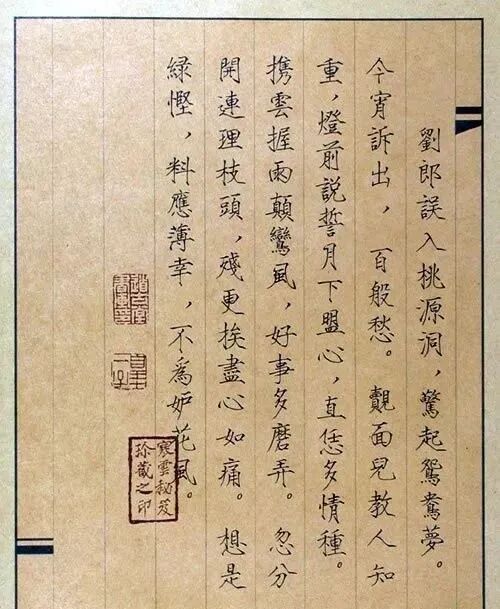 劉郎誤入桃源洞，驚起鴛鴦夢。
今宵訴出，百般愁。覿面兒教人知
重，燈前説誓月下盟心，直恁多情種。
携雲握雨顛鸞風，好事多磨弄。忽分
開連理枝頭，殘更挨盡心如痛。想是
綠慳，料應薄幸，不爲妒花風。
寒雲秘笈
珍藏之印